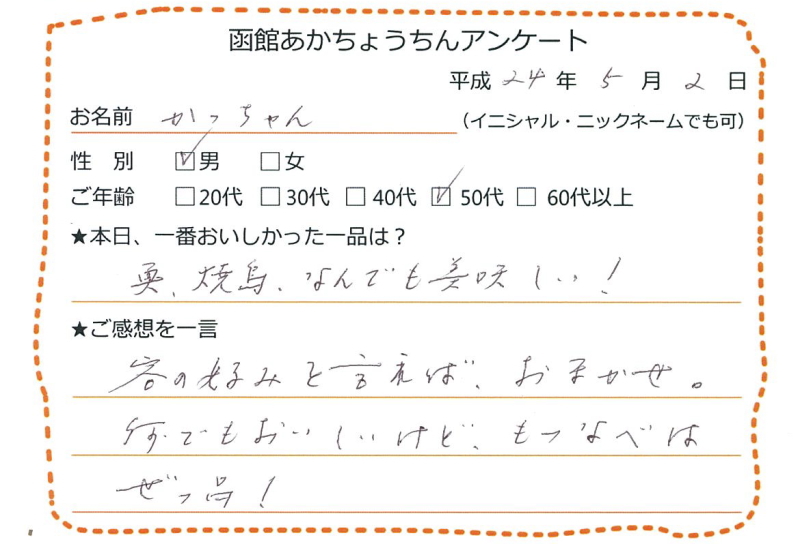 函館あかちょうちんアンケート
平成 24 年 5 月 2 日
お名前 かっちゃん (イニシャル・ニックネームでも可)
性 別 ☑男 □女
ご年齢 □20代 □30代 □40代 ☑50代 □60代以上
★本日、一番おいしかった一品は？
魚、焼鳥、なんでも美味しい！
★ご感想を一言
客の好みと言えば、おまかせ。
何でもおいしいけど、もつなべは
ぜっ品！